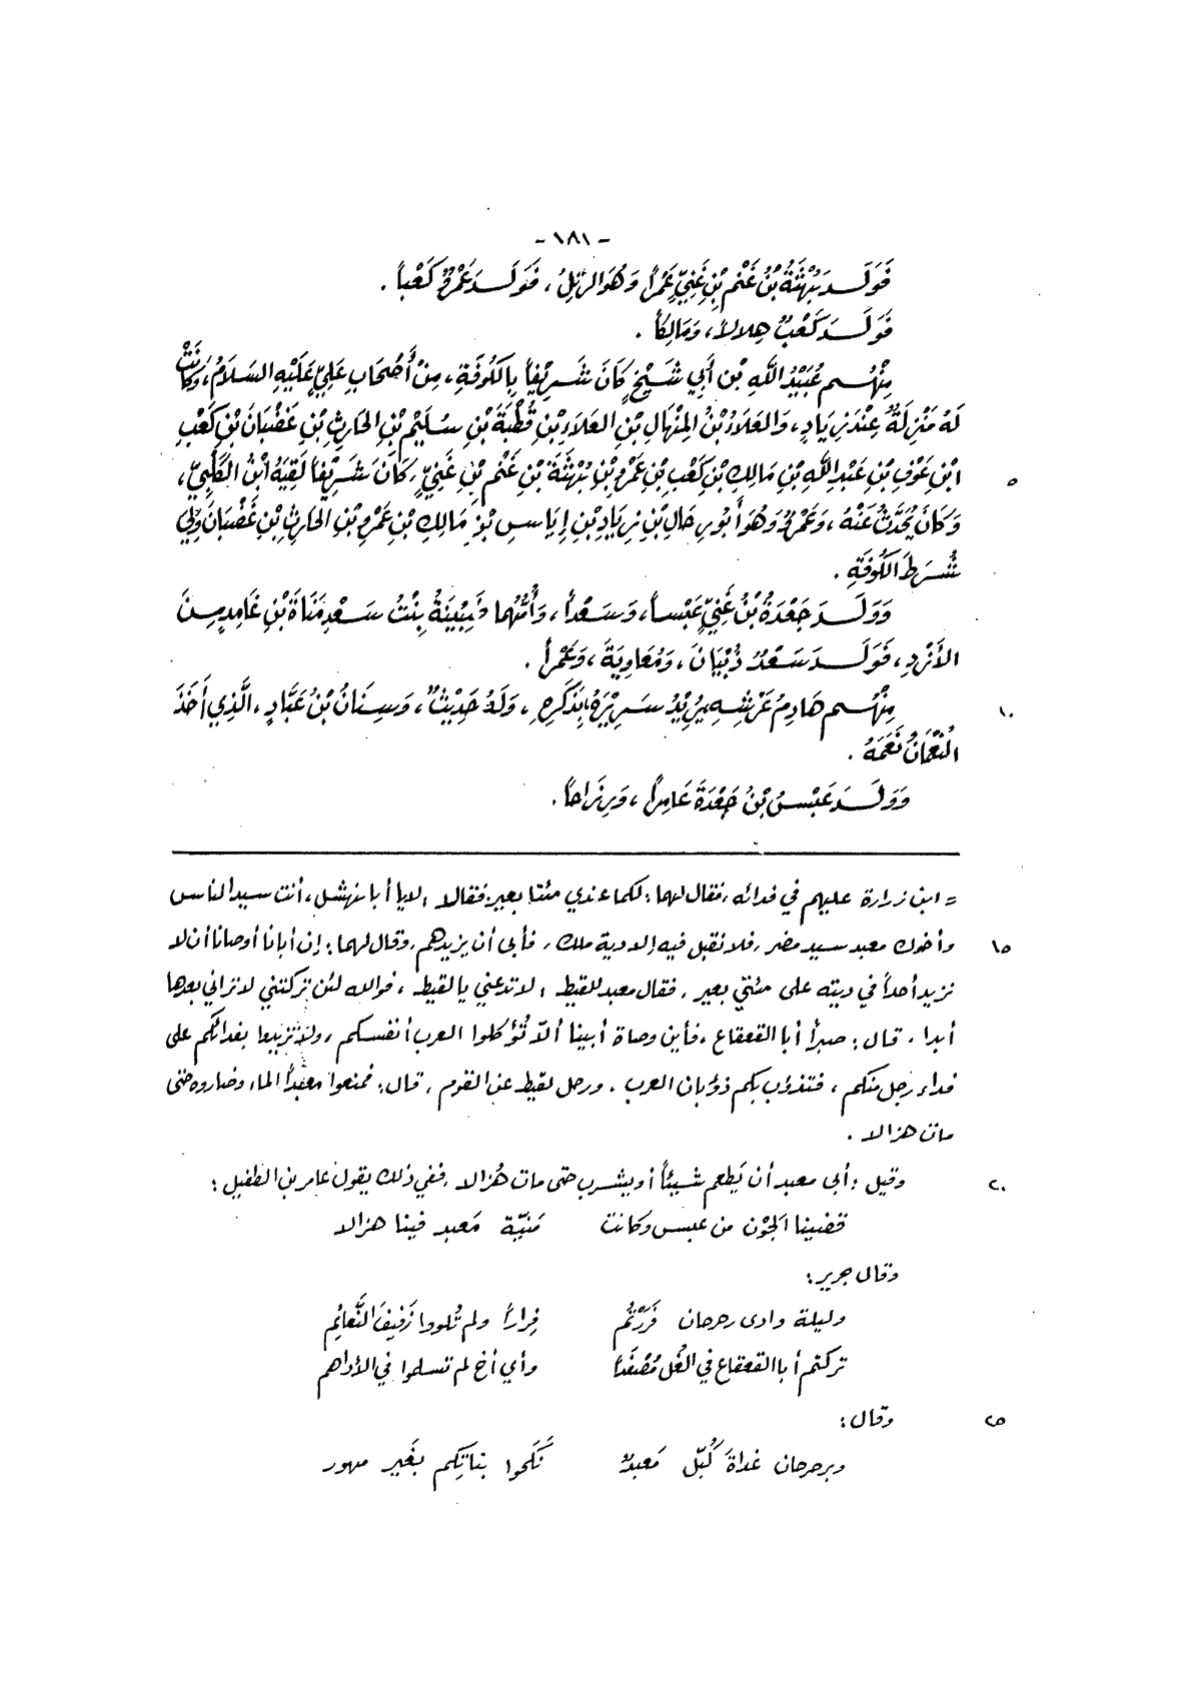 - ١٨١ -
فَوَلَدَ بُهْثَةُ بْنُ غَنْمِ بْنِ غَنِيٍّ عَمْراً وَهُوَ الرَّئِلُ، فَوَلَدَ عَمْرٌو كَعْباً.
فَوَلَدَ كَعْبٌ هِلَالاً، وَمَالِكاً.
مِنْهُم عُبَيْدُ اللَّهِ بْنِ أَبِي شَيْخٍ كَانَ شَرِيْفاً بِالكُوفَةِ، مِنْ أَصْحَابِ عَلِيٍّ عَلَيْهِ السَّلَامُ، وَكَانَتْ
لَهُ مَنْزِلَةٌ عِنْدَ زِيَادٍ، وَالعَلَاءُ بْنُ المِنْهَالِ بْنِ العَلَاءِ بْنِ قُطْبَةَ بْنِ سُلَيْمِ بْنِ الحَارِثِ بْنِ غَضْبَانَ بْنِ كَعْبِ
٥ ابْنِ عَوْفِ بْنِ عَبْدِ اللَّهِ بْنِ مَالِكِ بْنِ كَعْبِ بْنِ عَمْرِو بْنِ بُهْثَةَ بْنِ غَنْمِ بْنِ غَنِيٍّ، كَانَ شَرِيْفاً لَقِيَهُ ابْنُ الكَلْبِيِّ،
وَكَانَ يُحَدِّثُ عَنْهُ، وَعَمْرٌو وَهُوَ أَبُو رِحَالِ بْنِ زِيَادِ بْنِ إِيَاسِ بْنِ مَالِكِ بْنِ عَمْرِو بْنِ الحَارِثِ بْنِ غَضْبَانَ وَلِيَ
شُرَطَ الكُوفَةِ.
وَوَلَدَ جَعْدَةُ بْنُ غَنِيٍّ عَبْساً، وَسَعْداً، وَأُمُّهُما خُبَيْنَةُ بِنْتُ سَعْدِ مَنَاةَ بْنِ غَامِدٍ مِنَ
الأَزْدِ، فَوَلَدَ سَعْدٌ ذُبْيَانَ، وَمُعَاوِيَةَ، وَعَمْراً.
١٠ مِنْهُم هَادِمُ عَرْشِهِ يُرِيْدُ سَرِيْرَهُ بِذَكَرِهِ، وَلَهُ حَدِيْثٌ، وَسِنَانُ بْنُ عَبَّادٍ، الَّذِي أَخَذَ
النُّعْمَانُ نَعَمَهُ.
وَوَلَدَ عَبْسُ بْنُ جَعْدَةَ عَامِراً، وَرِزَاحاً.
= ابن زرارة عليهم في فدائه، فقال لهما: لكما عندي مئتا بعير، فقالا: لا يا أبا نهشل، أنت سيد الناس
١٥ وأخوك معبد سيد مضر، فلا نقبل فيه إلا دية ملك، فأبى أن يزيدهم، وقال لهما: إن أبانا أوصانا أن لا
نزيد أحداً في ديته على مئتي بعير، فقال معبد للقيط: لا تدعني يا لقيط، فوالله لئن تركتني لا تراني بعدها
أبدا، قال: صبراً أبا القعقاع، فأين وصاة أبينا ألّا تُؤكلوا العرب أنفسكم، ولا تزيدوا بفدائكم على
فداء رجل منكم، فتذؤب بكم ذؤبان العرب. ورحل لقيط عن القوم، قال: فمنعوا معبداً الماء وضاروه حتى
مات هزالا.
٢٠ وقيل: أبى معبد أن يَطعم شيئاً أو يشرب حتى مات هُزالا، ففي ذلك يقول عامر بن الطفيل:
قضينا الجَوْن من عبس وكانت مَنيّة مَعبد فينا هزالا
وقال جرير:
وليلة وادى رحرحان فَرَرْتُمُ فِراراً ولم تُلووا زَفيفَ النَّعائِم
تركتم أبا القعقاع في الغُل مُصْفَداً وأي أخ لم تسلموا في الأداهم
٢٥ وقال:
وبرحرحان غداةَ كُبّل مَعبدٌ نَكَحوا بناتِكم بغَير مهور